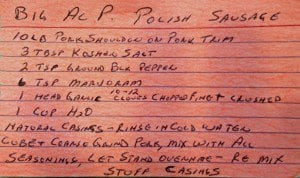 BIG AL P. POLISH SAUSAGE
10 LB PORK SHOULDER OR PORK TRIM
3 TBSP KOSHER SALT
2 TSP GROUND BLK PEPPER
6 TSP MARJORAM
1 HEAD GARLIC 10-12 CLOVES CHOPPED FINE + CRUSHED
1 CUP H2O
NATURAL CASINGS - RINSE IN COLD WATER
CUBE + COARSE GRIND PORK, MIX WITH ALL
SEASONINGS, LET STAND OVERNITE - RE MIX
STUFF CASINGS